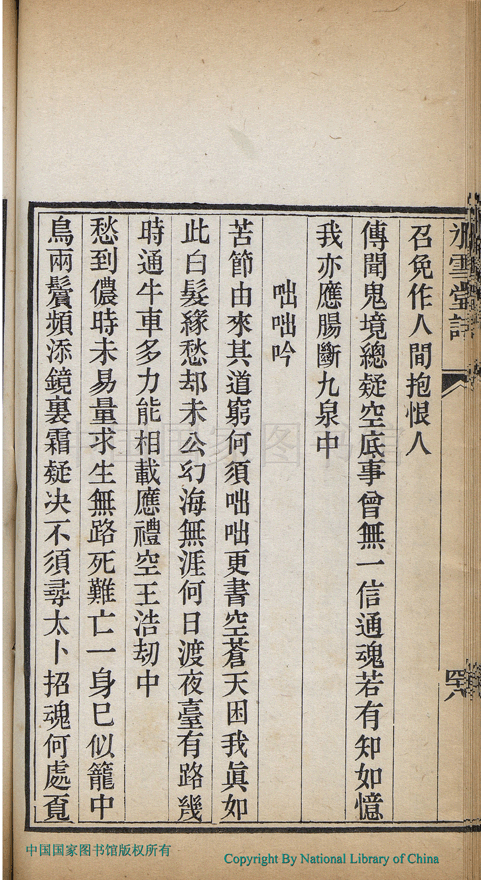 氷雪堂詩
召免作人間抱恨人
傳聞鬼境總疑空底事曾無一信通魂若有知如憶
我亦應腸斷九泉中
咄咄吟
苦節由來其道窮何須咄咄更書空蒼天困我眞如
此白髮緣愁却未公幻海無涯何日渡夜臺有路幾
時通牛車多力能相載應禮空王浩刧中
愁到儂時未易量求生無路死難亡一身巳似籠中
鳥兩鬢頻添鏡裏霜疑决不須尋太卜招魂何處覔
中国国家图书馆
中国国家图书馆版权所有
Copyright By National Library of China